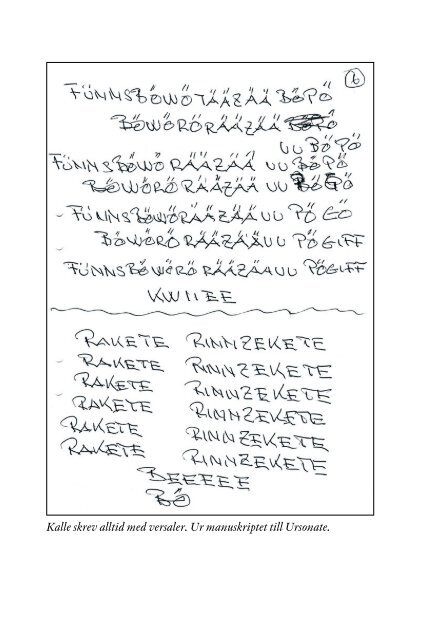 6
FÜNNSBÖWÖTÄÄZÄÄ BÖPÖ
BÖWÖRÖRÄÄZÄÄ
UU BÖPÖ
FÜNNSBÖWÖ RÄÄZÄÄ UU BÖPÖ
BÖWÖRÖ RÄÄZÄÄ UU BÖ PÖ
FÜNNSBÖWÖRÄÄZÄÄUU PÖ GÖ
BÖWÖRÖ RÄÄZÄÄUU PÖGIFF
FÜNNSBÖWÖRÖ RÄÄZÄÄUU PÖGIFF
KWIIEE
RAKETE RINNZEKETE
RAKETE RINNZEKETE
RAKETE RINNZEKETE
RAKETE RINNZEKETE
RAKETE RINNZEKETE
RAKETE RINNZEKETE
BEEEEE
BÖ
Kalle skrev alltid med versaler. Ur manuskriptet till Ursonate.